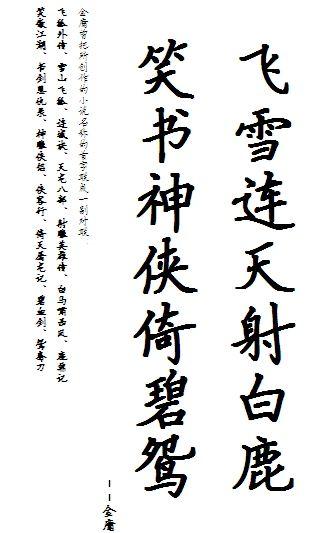 飞雪连天射白鹿
笑书神侠倚碧鸳
——金庸
金庸曾把所创作的小说名称的首字联成一副对联.
飞狐外传、雪山飞狐、连城诀、天龙八部、射雕英雄传、白马啸西风、鹿鼎记
笑傲江湖、书剑恩仇录、神雕侠侣、侠客行、倚天屠龙记、碧血剑、鸳鸯刀